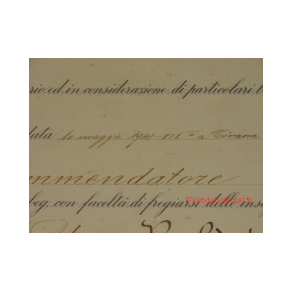 rio ed in considerazione di particolari b
data 10 maggio 1941 XIX° a Tirana
mmendatore
beg. con facoltà di fregiarsi delle inse